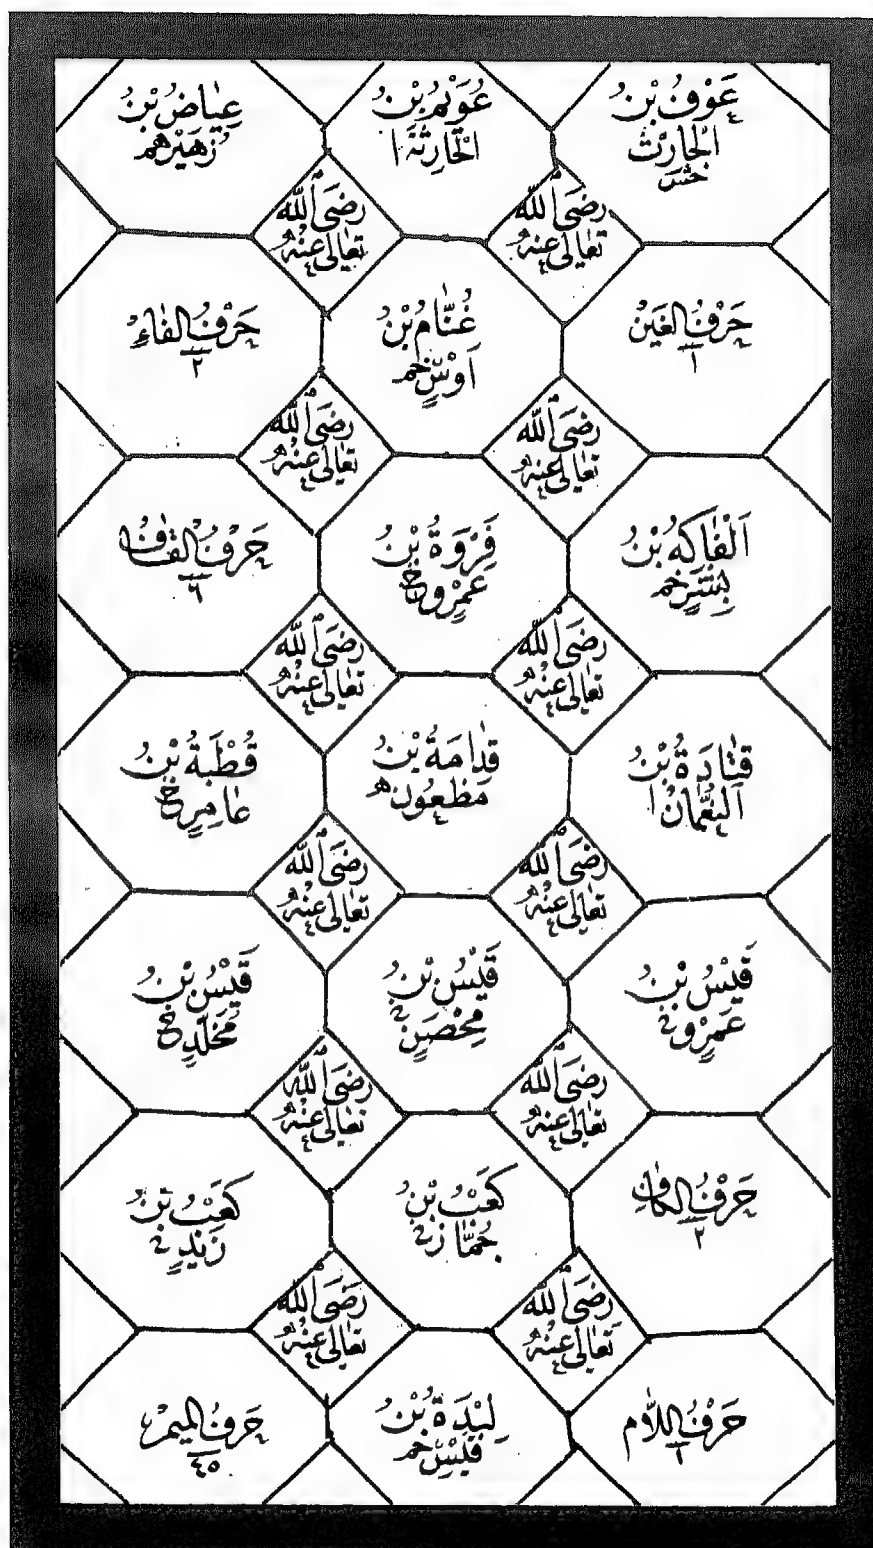 عَوْفُ بْنُ
الْحَارِثِ
عُوَيْمُ بْنُ
الْحَارِثَةِ ا
عِيَاضُ بْنُ
زُهَيْرٍ هم
رَضِيَ اللّٰهُ
تَعَالٰى عَنْهُ
رَضِيَ اللّٰهُ
تَعَالٰى عَنْهُ
حَرْفُ الْغَيْنْ
١
غَنَّامُ بْنُ
اَوْسٍ خم
حَرْفُ الْفَاءِ
٢
رَضِيَ اللّٰهُ
تَعَالٰى عَنْهُ
رَضِيَ اللّٰهُ
تَعَالٰى عَنْهُ
اَلْفَاكَهُ بْنُ
بِشْرٍ خم
فَرْوَةُ بْنُ
عَمْرٍو خ
حَرْفُ الْقَافْ
٦
رَضِيَ اللّٰهُ
تَعَالٰى عَنْهُ
رَضِيَ اللّٰهُ
تَعَالٰى عَنْهُ
قَتَادَةُ بْنُ
النُّعْمَانِ ا
قُدَامَةُ بْنُ
مَظْعُونٍ
قُطْبَةُ بْنُ
عَامِرٍ خ
رَضِيَ اللّٰهُ
تَعَالٰى عَنْهُ
رَضِيَ اللّٰهُ
تَعَالٰى عَنْهُ
قَيْسُ بْنُ
عَمْرٍو
قَيْسُ بْنُ
مِحْصَنٍ
قَيْسُ بْنُ
مُخَلَّدٍ خ
رَضِيَ اللّٰهُ
تَعَالٰى عَنْهُ
رَضِيَ اللّٰهُ
تَعَالٰى عَنْهُ
حَرْفُ الْكَافِ
٢
كَعْبُ بْنُ
جُمَّازٍ
كَعْبُ بْنُ
زَيْدٍ
رَضِيَ اللّٰهُ
تَعَالٰى عَنْهُ
رَضِيَ اللّٰهُ
تَعَالٰى عَنْهُ
حَرْفُ اللَّامْ
١
لِبْدَةُ بْنُ
قَيْسٍ خم
حَرْفُ الْمِيمْ
٤٥